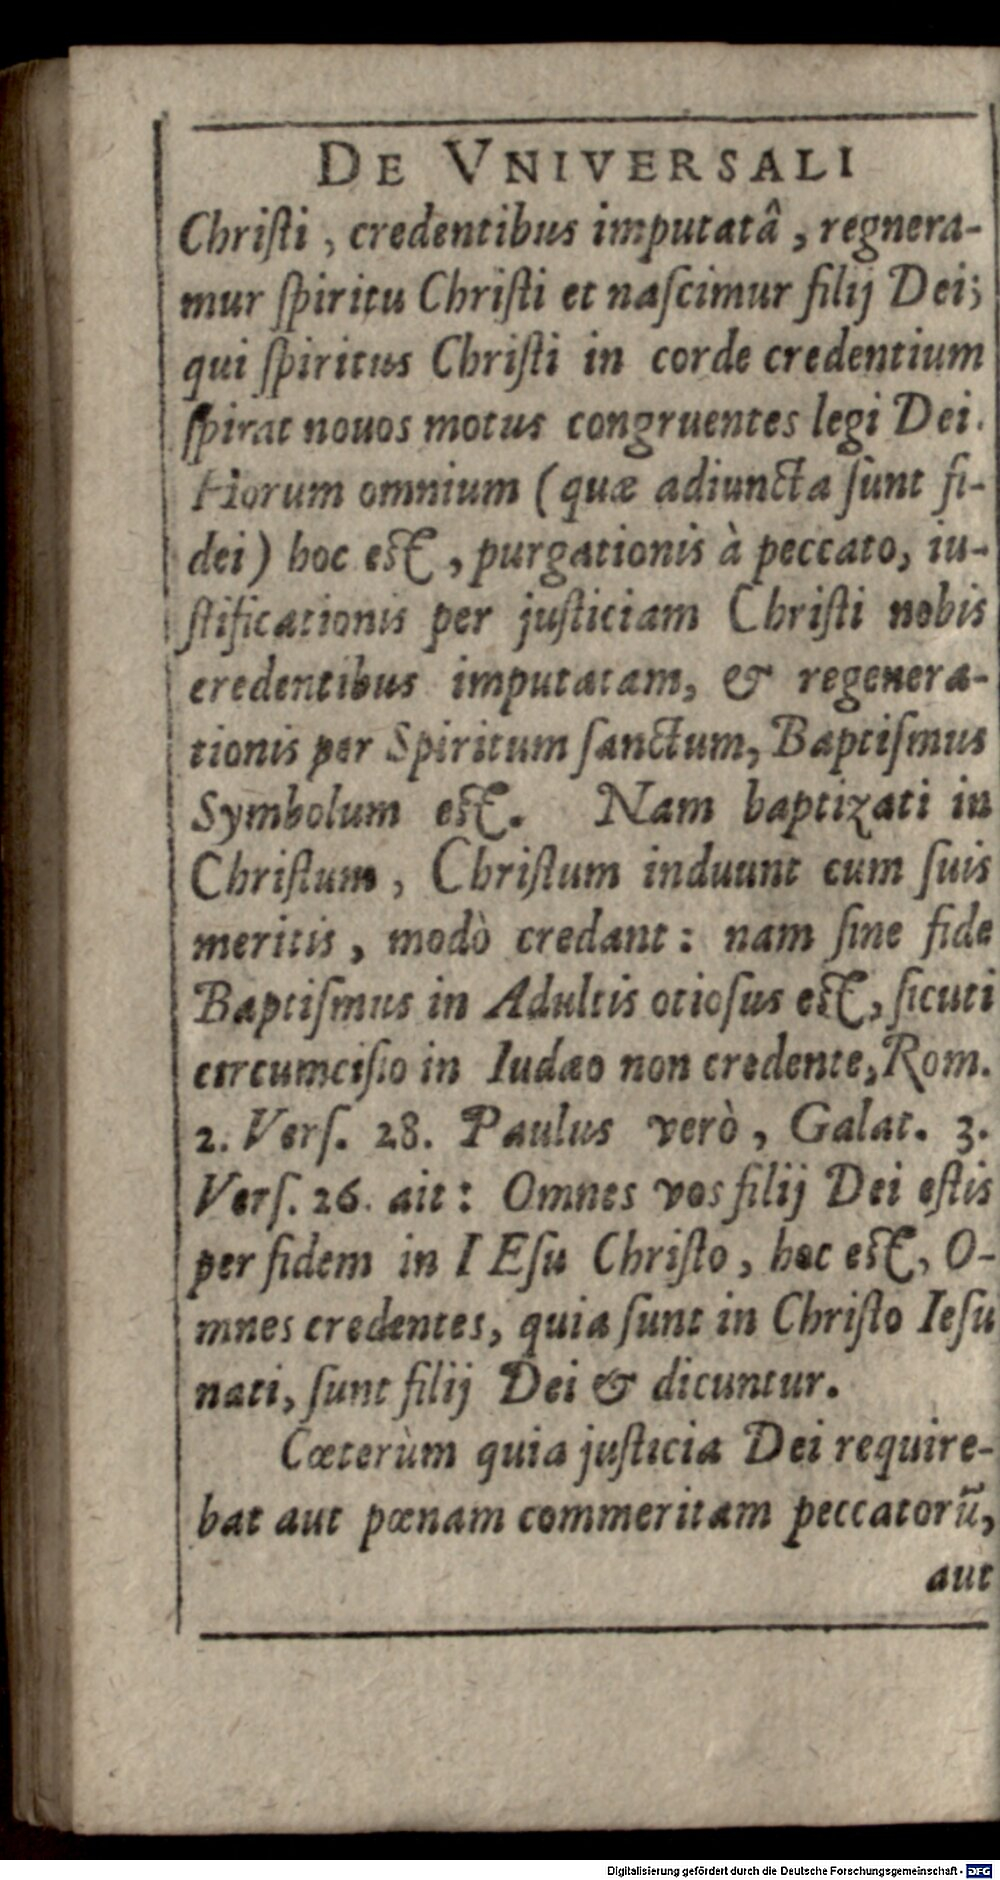 DE VNIVERSALI
Chriſti, credentibus imputatâ, regnera-
mur ſpiritu Chriſti et naſcimur filij Dei;
qui ſpiritus Chriſti in corde credentium
ſpirat nouos motus congruentes legi Dei.
Horum omnium (quæ adiuncta ſunt fi-
dei) hoc eſt, purgationis à peccato, iu-
ſtificationis per juſticiam Chriſti nobis
credentibus imputatam, & regenera-
tionis per Spiritum ſanctum, Baptiſmus
Symbolum eſt. Nam baptizati in
Chriſtum, Chriſtum induunt cum ſuis
meritis, modò credant: nam ſine fide
Baptiſmus in Adultis otioſus eſt, ſicuti
circumciſio in Iudæo non credente, Rom.
2. Verſ. 28. Paulus verò, Galat. 3.
Verſ. 26. ait: Omnes vos filij Dei eſtis
per fidem in IEſu Chriſto, hoc eſt, O-
mnes credentes, quia ſunt in Chriſto Ieſu
nati, ſunt filij Dei & dicuntur.
Cæterùm quia juſticia Dei require-
bat aut pœnam commeritam peccatorũ,
aut
Digitalisierung gefördert durch die Deutsche Forschungsgemeinschaft - DFG